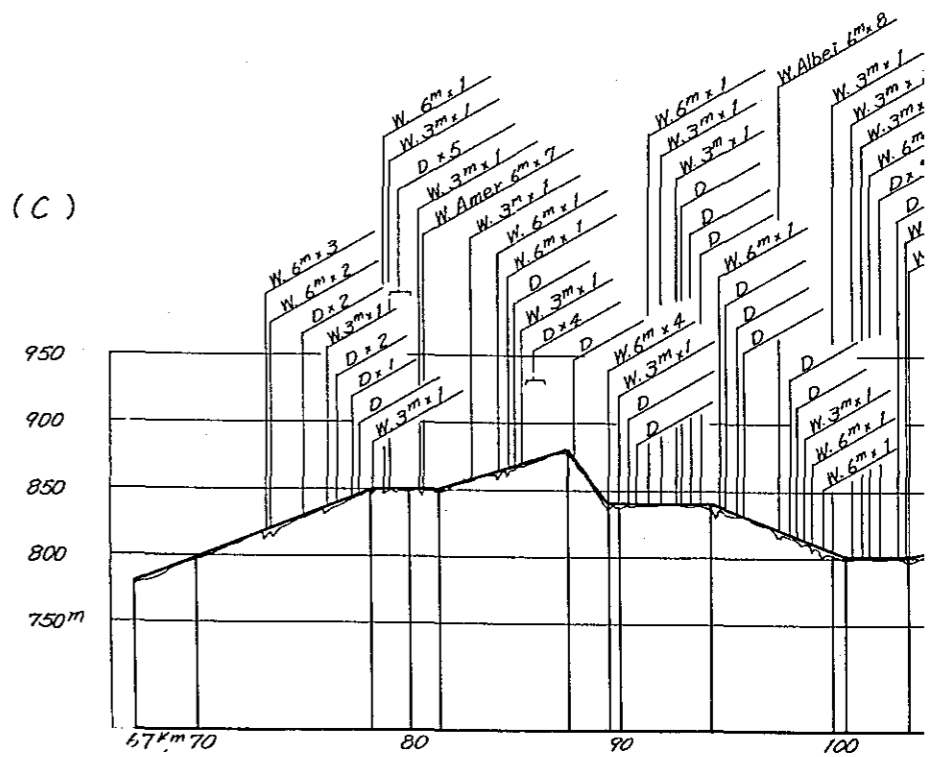 (C)
W. 6m x 3
W. 6m x 2
D x 2
W. 3m x 1
D x 2
D x 1
D
W. 3m x 1
W. 6m x 1
W. 3m x 1
D x 5
W. 3m x 1
W. Amer 6m x 7
W. 3m x 1
W. 6m x 1
W. 6m x 1
D
W. 3m x 1
D x 4
D
W. 6m x 4
W. 3m x 1
D
D
W. 6m x 1
W. 3m x 1
W. 3m x 1
D
D
D
W. 6m x 1
D
D
D
W. Albei 6m x 8
D
D
W. 3m x 1
W. 6m x 1
W. 6m x 1
W. 3m x 1
W. 3m x
W. 3m x
W. 6m
D x
D
W
W
950
900
850
800
750m
67 Km 70 80 90 100